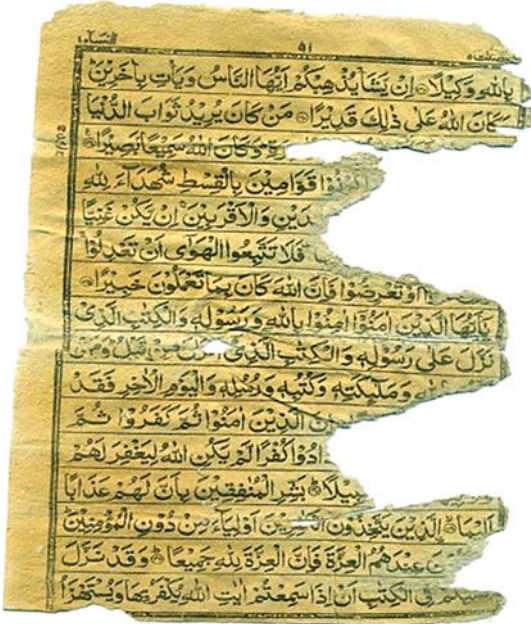 النسآء ٤ ٩١
بِاللهِ وَكِيلًا ۞ اِنْ يَّشَاْ يُذْهِبْكُمْ اَيُّهَا النَّاسُ وَيَاْتِ بِاٰخَرِيْنَ
كَانَ اللهُ عَلٰى ذٰلِكَ قَدِيْرًا ۞ مَنْ كَانَ يُرِيْدُ ثَوَابَ الدُّنْيَا
وَكَانَ اللهُ سَمِيْعًا بَصِيْرًا
قَوَّامِيْنَ بِالْقِسْطِ شُهَدَآءَ لِلّٰهِ
وَالْاَقْرَبِيْنَ اِنْ يَّكُنْ غَنِيًّا
فَلَا تَتَّبِعُوا الْهَوٰى اَنْ تَعْدِلُوْا
اَوْ تُعْرِضُوْا فَاِنَّ اللهَ كَانَ بِمَا تَعْمَلُوْنَ خَبِيْرًا ۞
يٰٓاَيُّهَا الَّذِيْنَ اٰمَنُوْٓا اٰمِنُوْا بِاللهِ وَرَسُوْلِهٖ وَالْكِتٰبِ الَّذِيْ
نَزَّلَ عَلٰى رَسُوْلِهٖ وَالْكِتٰبِ الَّذِيْٓ مِنْ قَبْلُ وَمَنْ
وَمَلٰٓئِكَتِهٖ وَكُتُبِهٖ وَرُسُلِهٖ وَالْيَوْمِ الْاٰخِرِ فَقَدْ
الَّذِيْنَ اٰمَنُوْا ثُمَّ كَفَرُوْا ثُمَّ
كُفْرًا لَّمْ يَكُنِ اللهُ لِيَغْفِرَ لَهُمْ
بَشِّرِ الْمُنٰفِقِيْنَ بِاَنَّ لَهُمْ عَذَابًا
اَلِيْمًا ۞ الَّذِيْنَ يَتَّخِذُوْنَ اَوْلِيَآءَ مِنْ دُوْنِ الْمُؤْمِنِيْنَ
عِنْدَهُمُ الْعِزَّةَ فَاِنَّ الْعِزَّةَ لِلّٰهِ جَمِيْعًا ۞ وَقَدْ نَزَّلَ
فِي الْكِتٰبِ اَنْ اِذَا سَمِعْتُمْ اٰيٰتِ اللهِ يُكْفَرُ بِهَا وَيُسْتَهْزَاُ